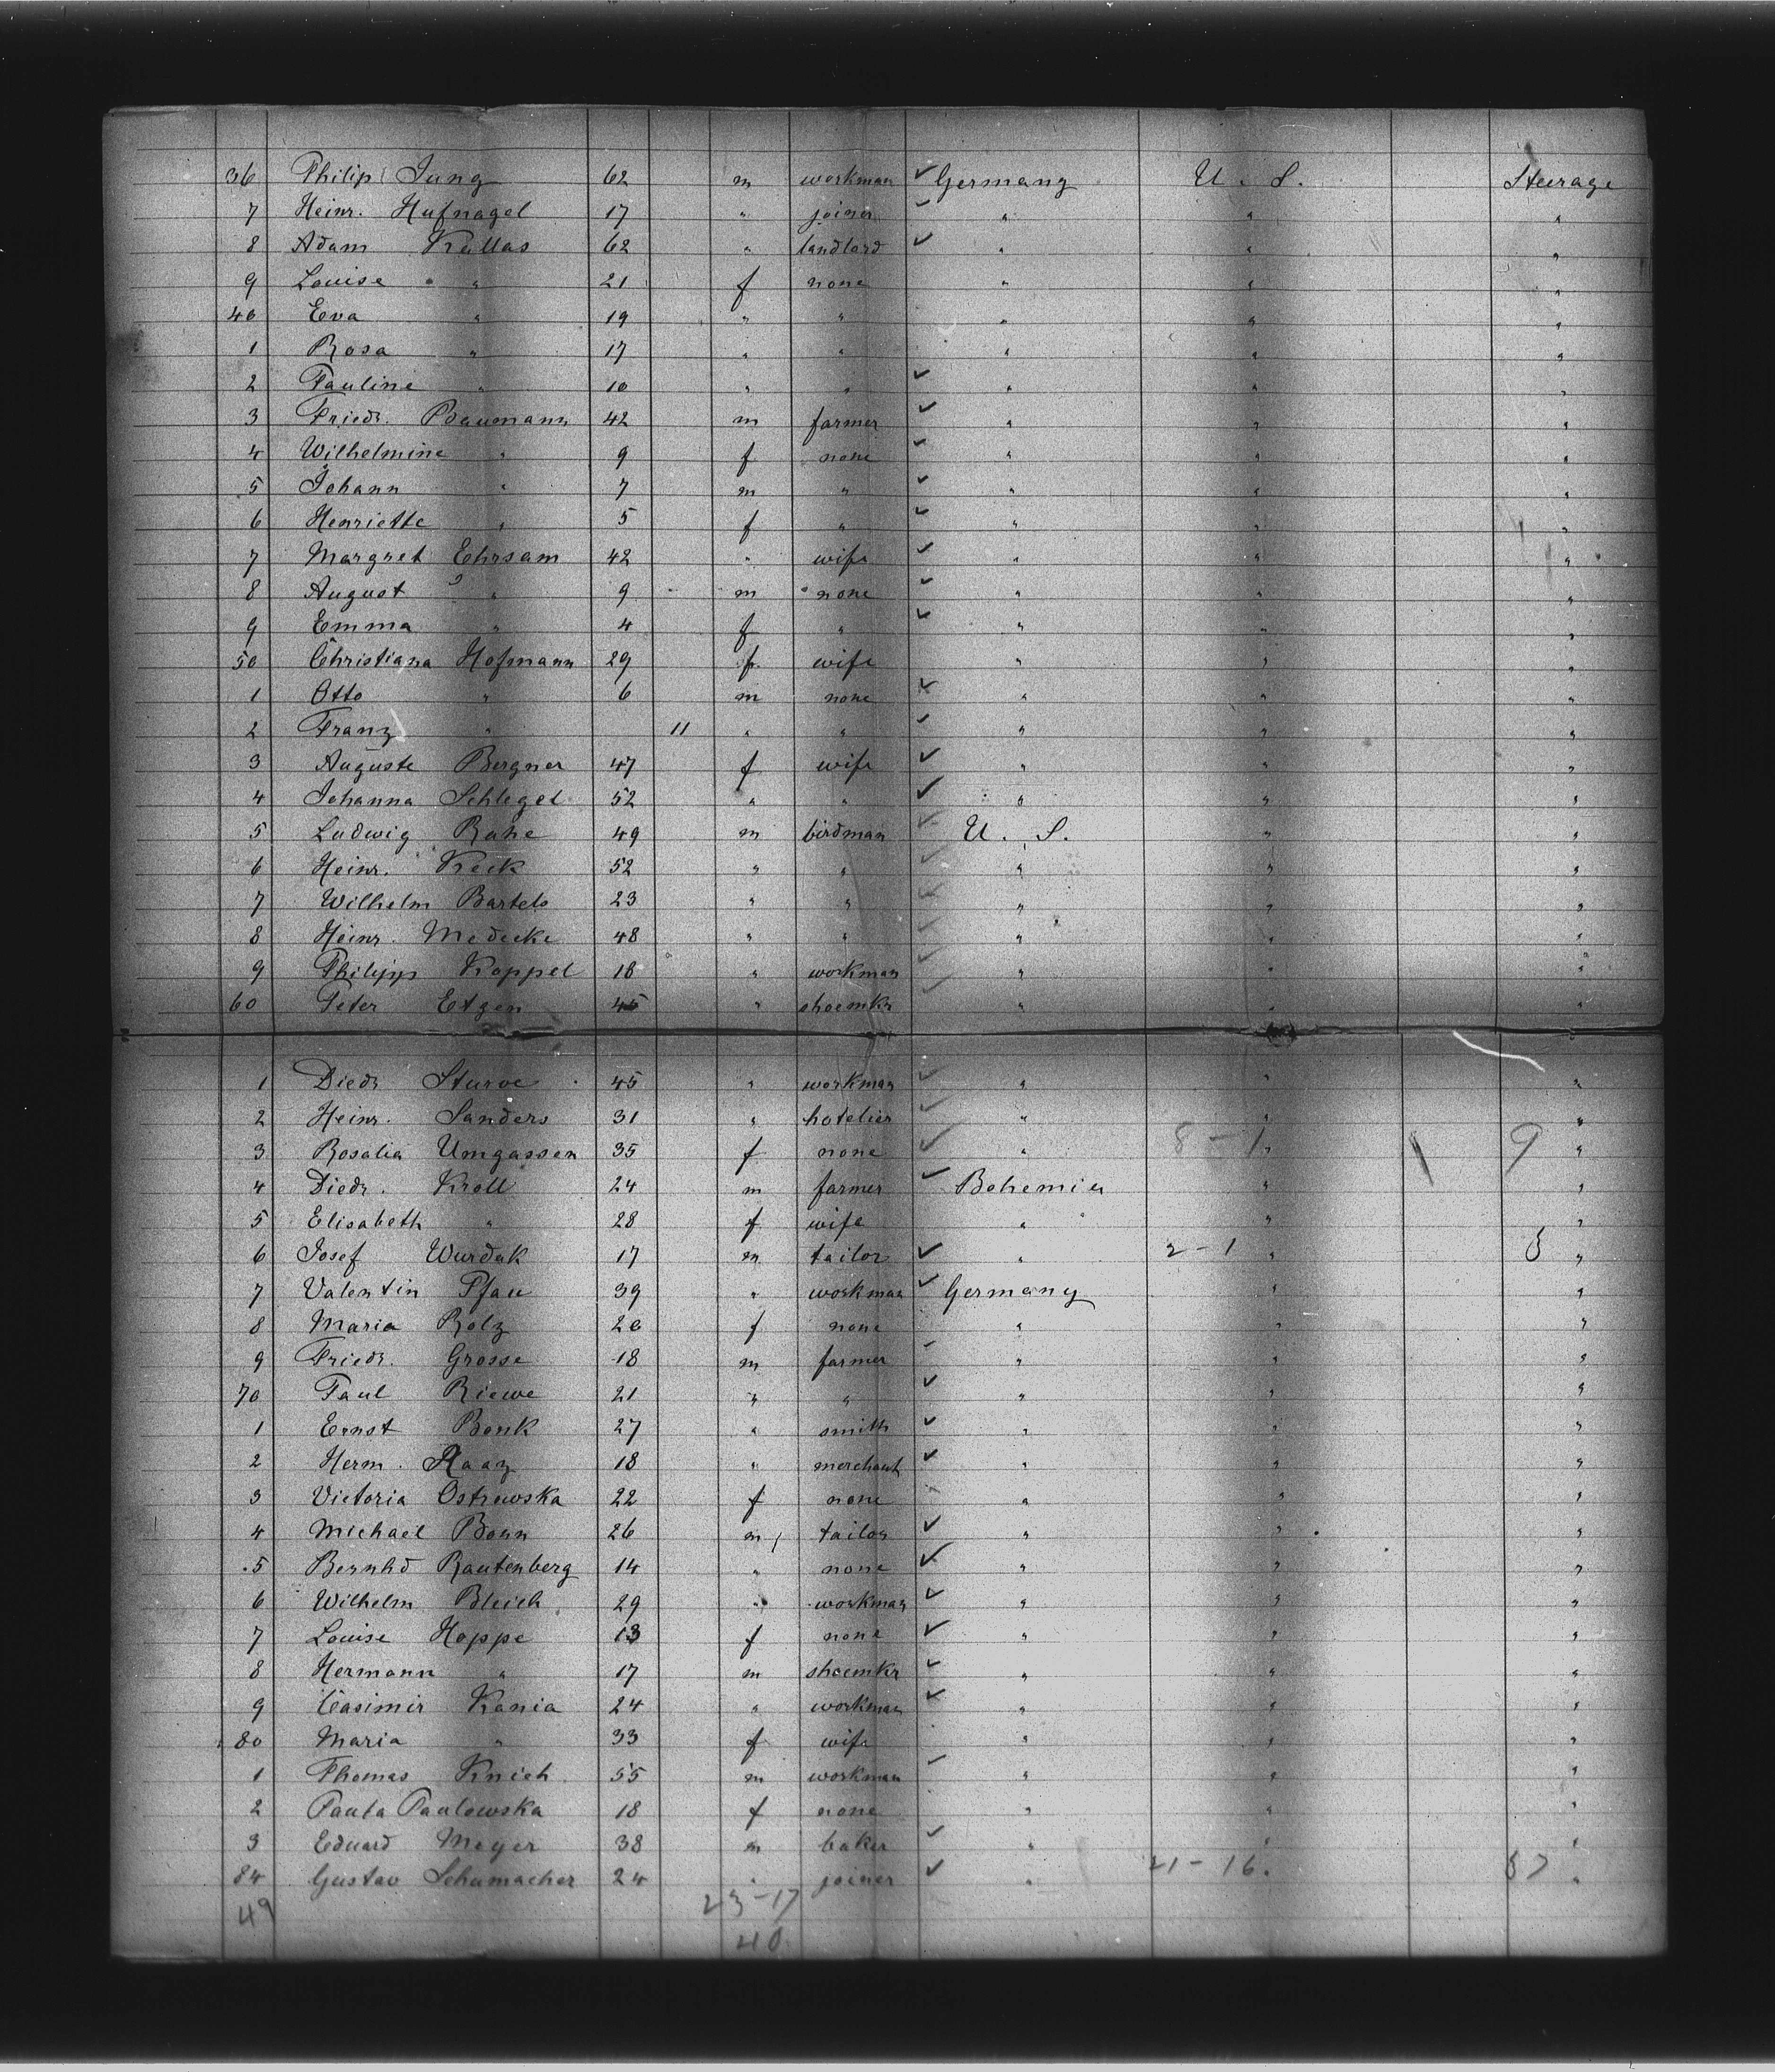 36 Philip Jung 62 m workman ✓ Germany U. S. Steerage
7 Heinr. Hufnagel 17 " joiner ✓ " " "
8 Adam Kallas 62 " landlord ✓ " " "
9 Louise " 21 f none " " "
40 Eva " 19 " " " " "
1 Rosa " 17 " " " " "
2 Pauline " 10 " " ✓ " " "
3 Friedr. Baumann 42 m farmer ✓ " " "
4 Wilhelmine " 9 f none ✓ " " "
5 Johann " 7 m " ✓ " " "
6 Henriette " 5 f " ✓ " " "
7 Margret Ehrsam 42 " wife ✓ " " "
8 August " 9 m none ✓ " " "
9 Emma " 4 f " ✓ " " "
50 Christiana Hofmann 29 f wife " " "
1 Otto " 6 m none ✓ " " "
2 Franz " 11 " " ✓ " " "
3 Auguste Bergner 47 f wife ✓ " " "
4 Johanna Schlegel 52 " " ✓ " " "
5 Ludwig Rahe 49 m birdman ✓ U. S. " "
6 Heinr. Keck 52 " " ✓ " " "
7 Wilhelm Bartels 23 " " ✓ " " "
8 Heinr. Medecke 48 " " ✓ " " "
9 Philipp Koppel 18 " workman ✓ " " "
60 Peter Etgen 45 " shoemkr ✓ " " "
1 Diedr Sturve 45 " workman ✓ " " "
2 Heinr. Sanders 31 " hotelier ✓ " " "
3 Rosalia Umgassen 35 f none ✓ " 8-1 " 9 "
4 Diedr. Kroll 24 m farmer ✓ Bohemia " "
5 Elisabeth " 28 f wife " " "
6 Josef Wurdak 17 m tailor ✓ " 2-1 " 3 "
7 Valentin Pfau 39 " workman ✓ Germany " "
8 Maria Rolz 20 f none " " "
9 Friedr. Grosse 18 m farmer ✓ " " "
70 Paul Riewe 21 " " ✓ " " "
1 Ernst Bonk 27 " smith ✓ " " "
2 Herm. Haaz 18 " merchant ✓ " " "
3 Victoria Ostrowska 22 f none " " "
4 Michael Bonn 26 m tailor ✓ " " "
5 Bernhd Rautenberg 14 " none ✓ " " "
6 Wilhelm Bleich 29 " workman ✓ " " "
7 Louise Hoppe 13 f none ✓ " " "
8 Hermann " 17 m shoemkr ✓ " " "
9 Casimir Kania 24 " workman ✓ " " "
80 Maria " 33 f wife " " "
1 Thomas Knich 55 m workman ✓ " " "
2 Paula Paulowska 18 f none " " "
3 Eduard Meyer 38 m baker ✓ " " "
84 Gustav Schumacher 24 " joiner ✓ " 21-16. 37 "
49 23-17
40